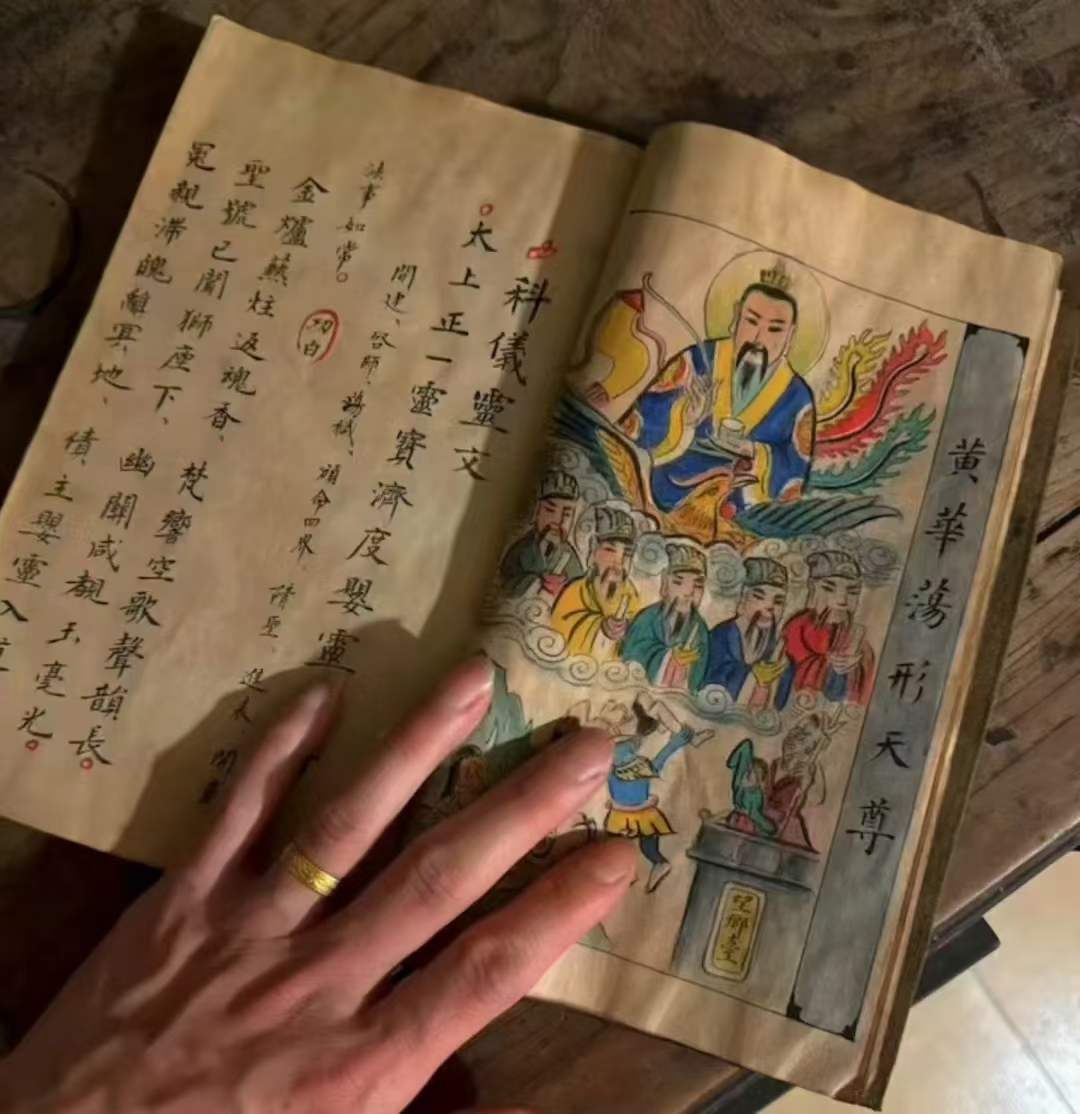 黄華蕩形天尊
望鄉臺
科儀靈文
太上正一靈寶濟度嬰靈
開建、啟師、蕩穢、頒命四界、請聖、進表、開
法事如常。
金爐爇炷返魂香、梵響空歌聲韻長
聖號已聞獅座下、幽關咸覩玉毫光
冤親滯魄離冥地、債主嬰靈入